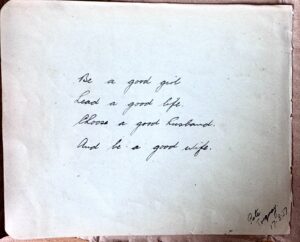 Be a good girl
Lead a good life.
Choose a good husband.
And be a good wife.